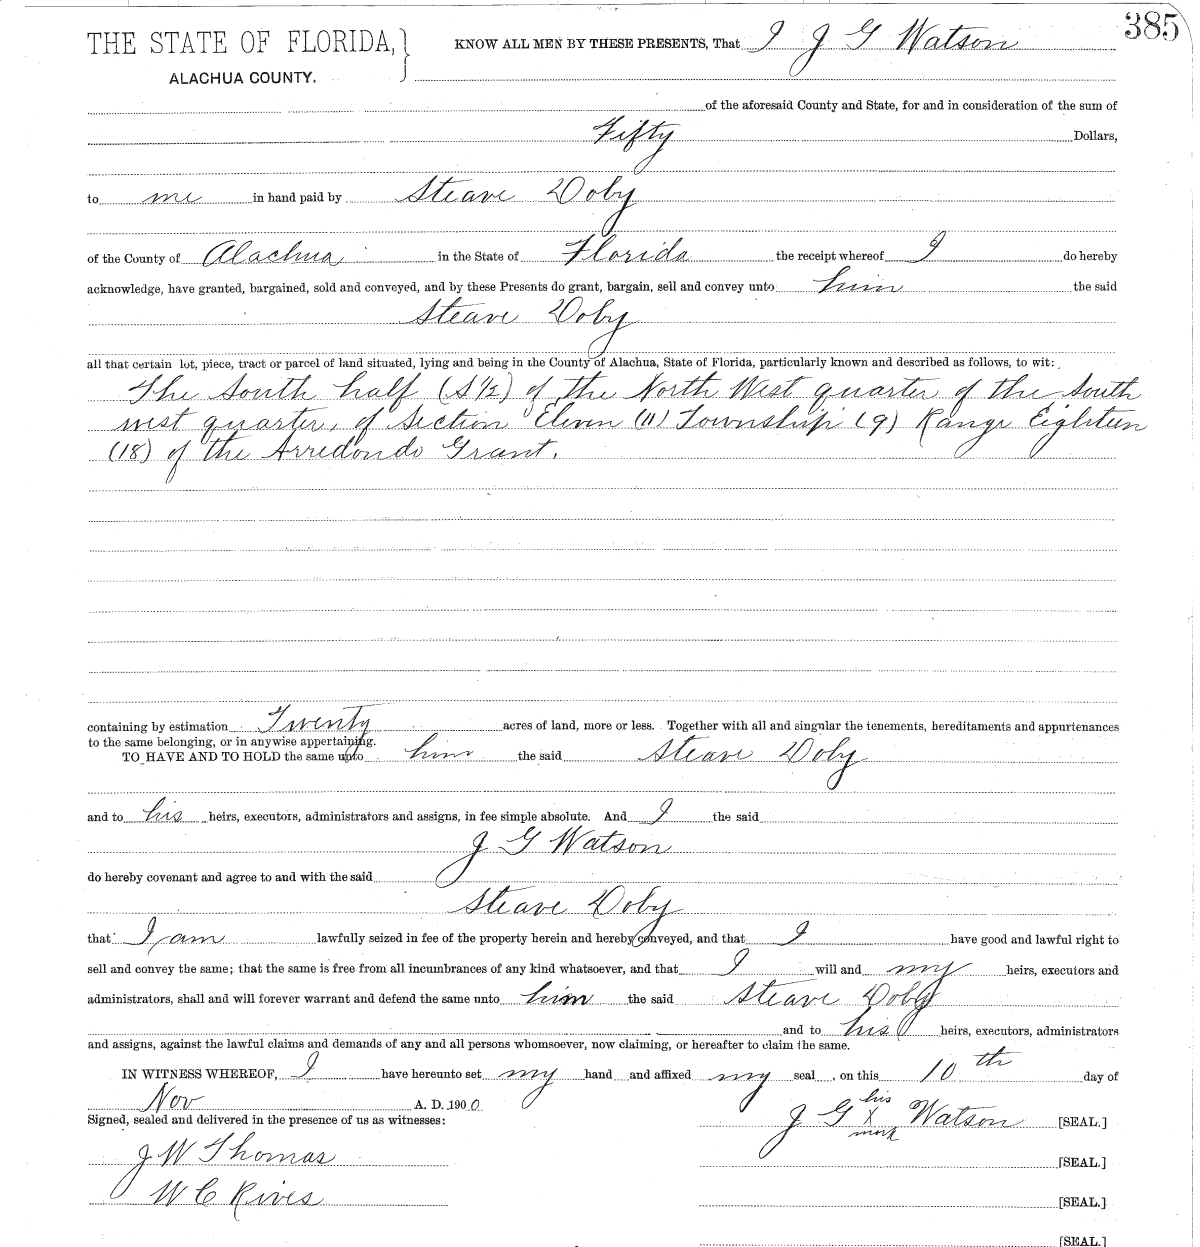 385
THE STATE OF FLORIDA, } KNOW ALL MEN BY THESE PRESENTS, That I J G Watson
ALACHUA COUNTY.
of the aforesaid County and State, for and in consideration of the sum of
Fifty Dollars,
to me in hand paid by Steave Doby
of the County of Alachua in the State of Florida the receipt whereof I do hereby
acknowledge, have granted, bargained, sold and conveyed, and by these Presents do grant, bargain, sell and convey unto him the said
Steave Doby
all that certain lot, piece, tract or parcel of land situated, lying and being in the County of Alachua, State of Florida, particularly known and described as follows, to wit:
The South half (S 1/2) of the North West quarter of the South
west quarter, of Section Eleven (11) Township (9) Range Eighteen
(18) of the Arredondo Grant.
containing by estimation Twenty acres of land, more or less. Together with all and singular the tenements, hereditaments and appurtenances
to the same belonging, or in anywise appertaining.
TO HAVE AND TO HOLD the same unto him the said Steave Doby
and to his heirs, executors, administrators and assigns, in fee simple absolute. And I the said
J G Watson
do hereby covenant and agree to and with the said
Steave Doby
that I am lawfully seized in fee of the property herein and hereby conveyed, and that I have good and lawful right to
sell and convey the same; that the same is free from all incumbrances of any kind whatsoever, and that I will and my heirs, executors and
administrators, shall and will forever warrant and defend the same unto him the said Steave Doby
and to his heirs, executors, administrators
and assigns, against the lawful claims and demands of any and all persons whomsoever, now claiming, or hereafter to claim the same.
IN WITNESS WHEREOF, I have hereunto set my hand and affixed my seal, on this 10th day of
Nov A. D. 1900
Signed, sealed and delivered in the presence of us as witnesses:
his
J G X Watson [SEAL.]
mark
J W Thomas [SEAL.]
W C Rives [SEAL.]
[SEAL.]